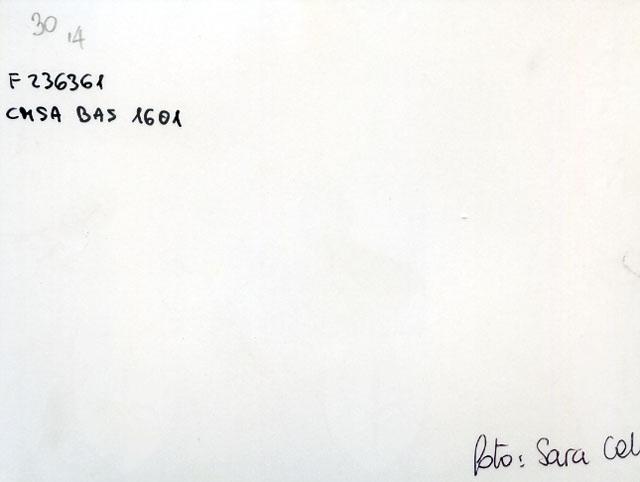 30
14
F 236361
CMSA BAS 1601
foto: Sara Cel